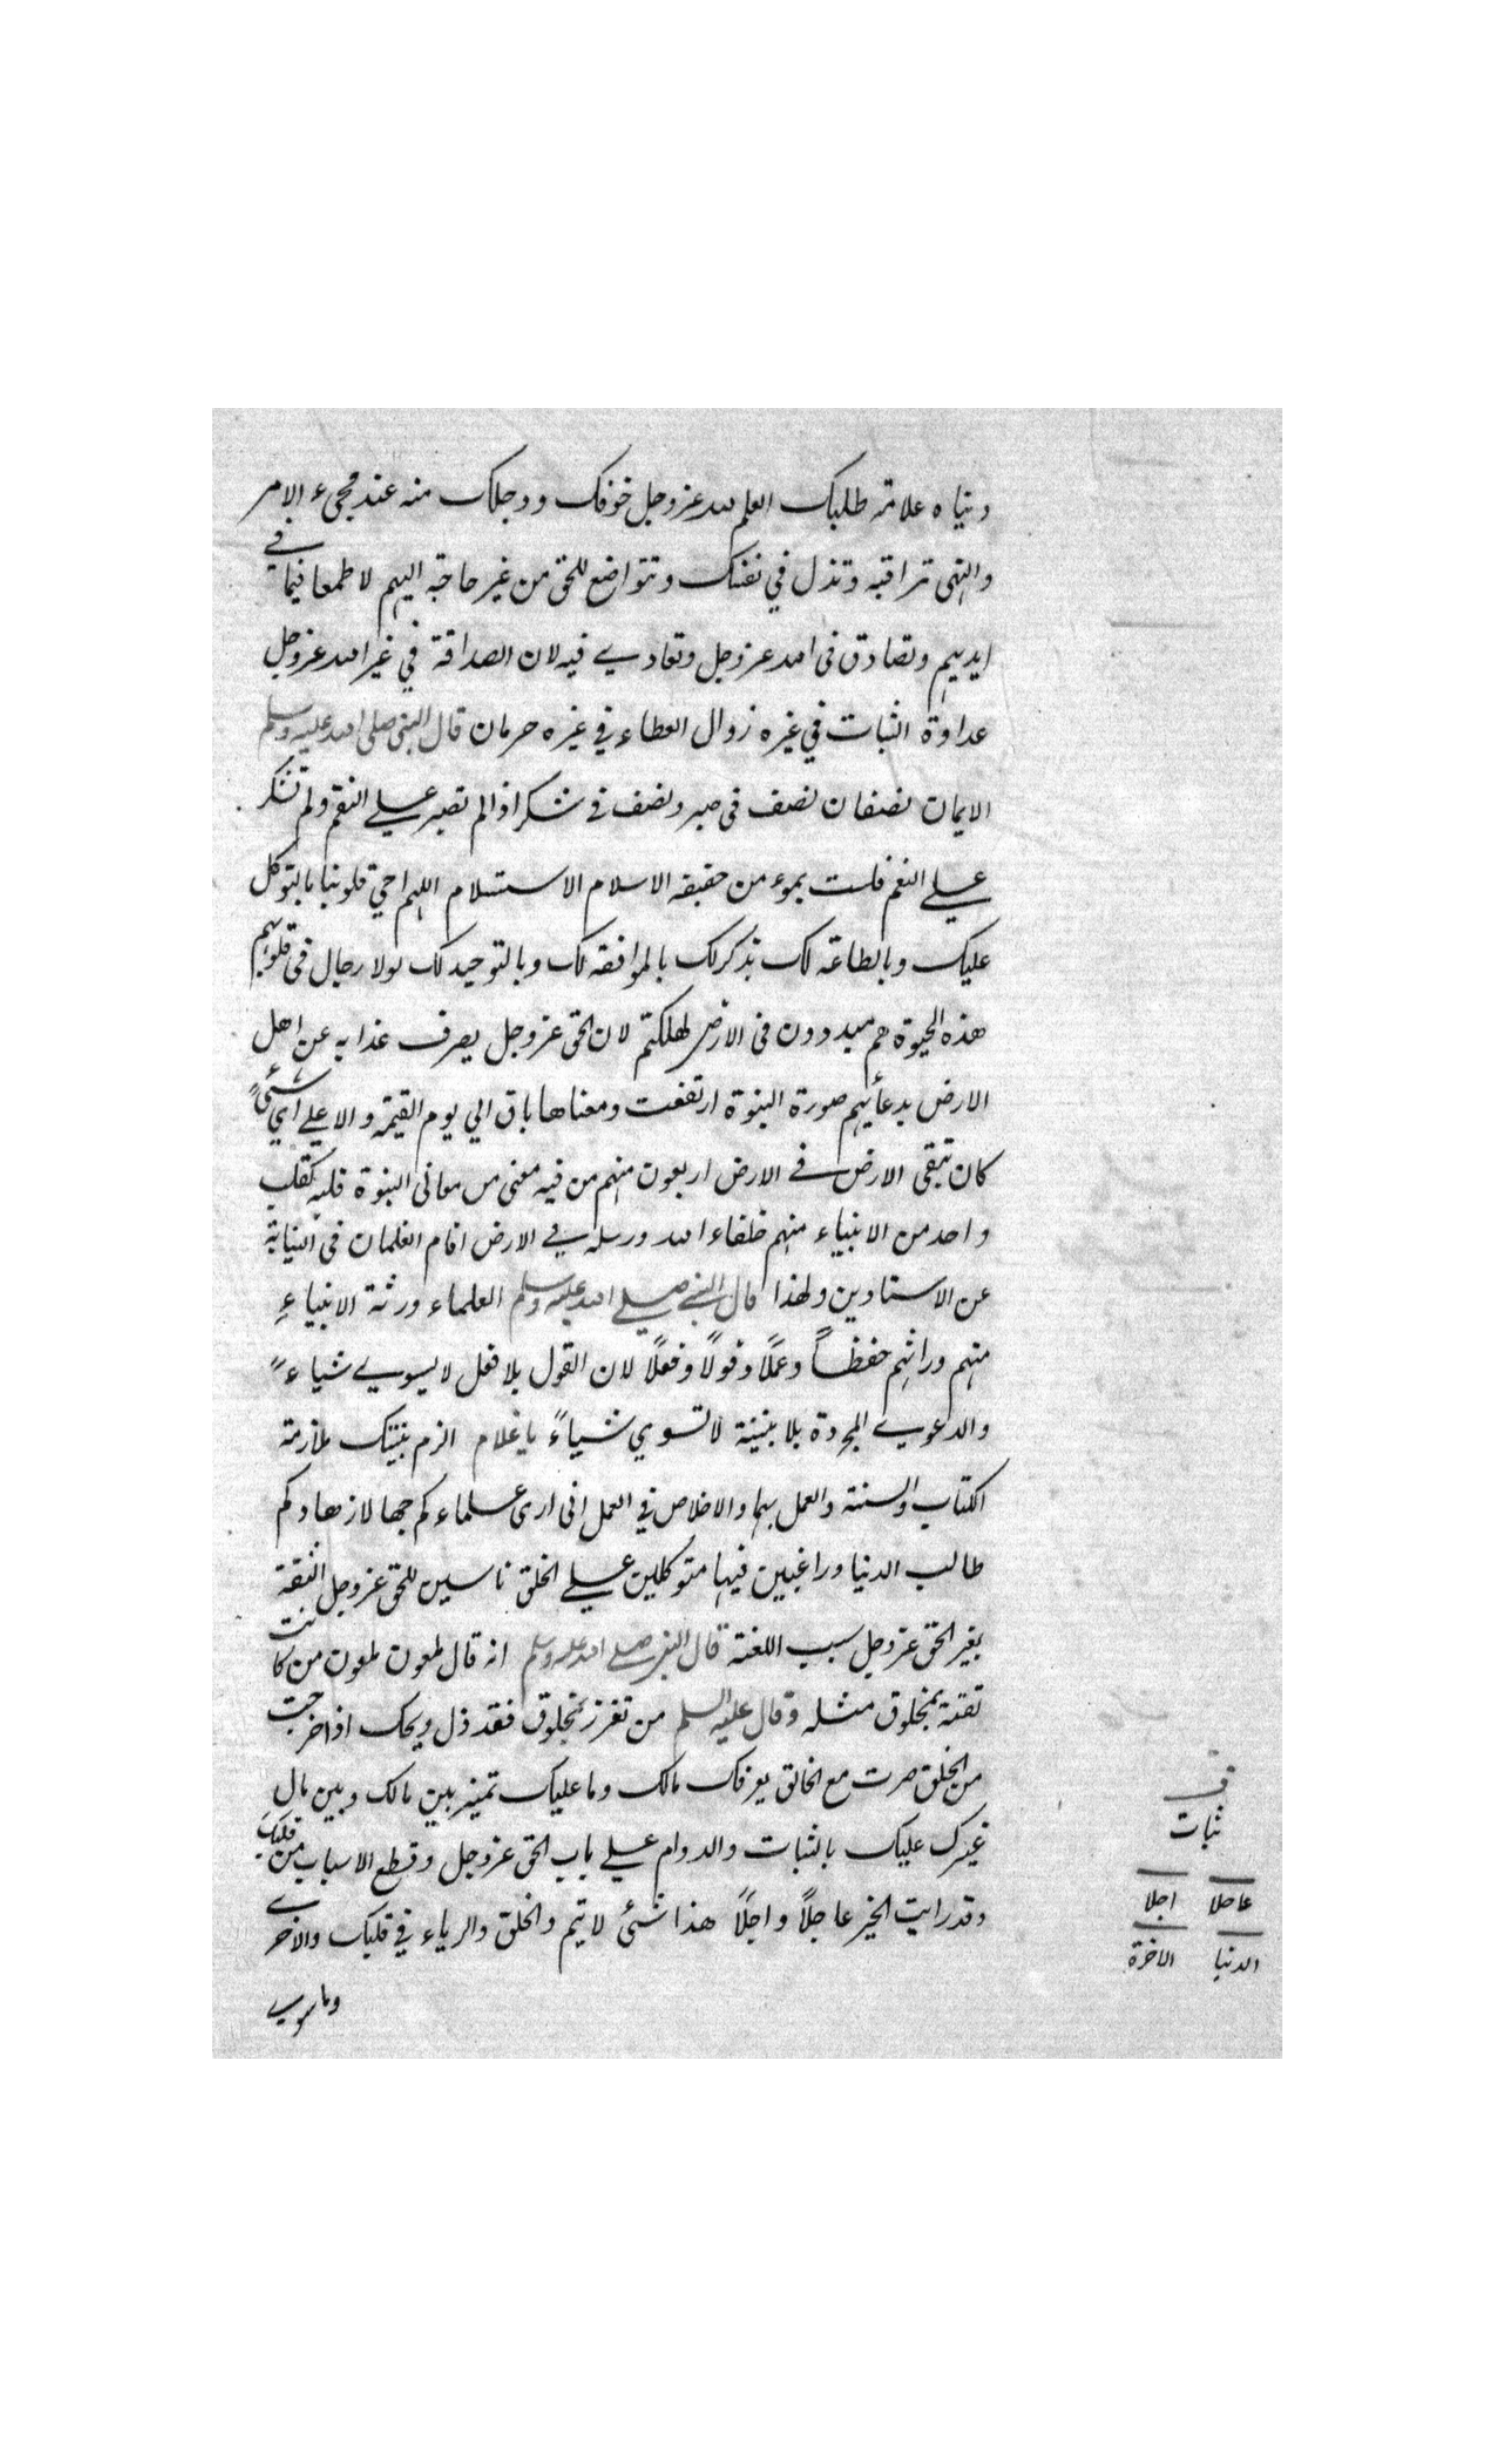 دنياه علامة طلبك العلم لله عز وجل خوفك ووجلك منه عند مجيء الامر
والنهي تراقبه وتذل في نفسك وتتواضع للخلق من غير حاجة اليهم لا طمعا فيما في
ايديهم وتصادق في الله عز وجل وتعادي فيه لان الصداقة في غير الله عز وجل
عداوة الثبات في غيره زوال العطاء في غيره حرمان قال النبي صلى الله عليه وسلم
الايمان نصفان نصف في صبر ونصف في شكر اذا لم تصبر علي النقم ولم تشكر
علي النعم فلست بموءمن حقيقة الاسلام الاستسلام اللهم احي قلوبنا بالتوكل
عليك وبالطاعة لك بذكرك بالموافقة لك وبالتوحيد لك لولا رجال في قلوبهم
هذه الحيوة هم مبددون في الارض لهلكتم لان الحق عز وجل يصرف عذابه عن اهل
الارض بدعائهم صورة النبوة ارتفعت ومعناها باق الي يوم القيمة والا علي اي شيءٍ
كان تبقى الارض في الارض اربعون منهم من فيه معنى من معاني النبوة قلبه كقلب
واحد من الانبياء منهم خلفاء الله ورسله في الارض اقام الغلمان في النيابة
عن الاستادين ولهذا قال النبي صلي الله عليه وسلم العلماء ورثة الانبياءِ
منهم وراثهم حفظاً وعملاً وقولاً وفعلاً لان القول بلا فعل لا يسوي شياءً
والدعوي المجردة بلا بينة لا تسوي شياءً يا غلام الزم بيتك ملازمة
الكتاب والسنة والعمل بهما والاخلاص في العمل اني ارى علماءكم جهالا زهادكم
طالب الدنيا وراغبين فيها متوكلين علي الخلق ناسين للحق عز وجل الثقة
بغير الحق عز وجل سبب اللعنة قال النبي صلي الله عليه وسلم انه قال ملعون ملعون من كانت
ثقته بمخلوق مثله وقال عليه السلم من تعزز بمخلوق فقد ذل ويحك اذا خرجت
من الخلق صرت مع الخالق يعرفك مالك وما عليك تميز بين مالك وبين مال
غيرك عليك بالثبات والدوام علي باب الحق عز وجل وقطع الاسباب من قلبك
وقد رايت الخير عاجلاً واجلاً هذا شئ لا يتم والخلق والرياء في قلبك والاخرى
وما سوي
ف
ثبات
عاجلا اجلا
الدنيا الاخرة